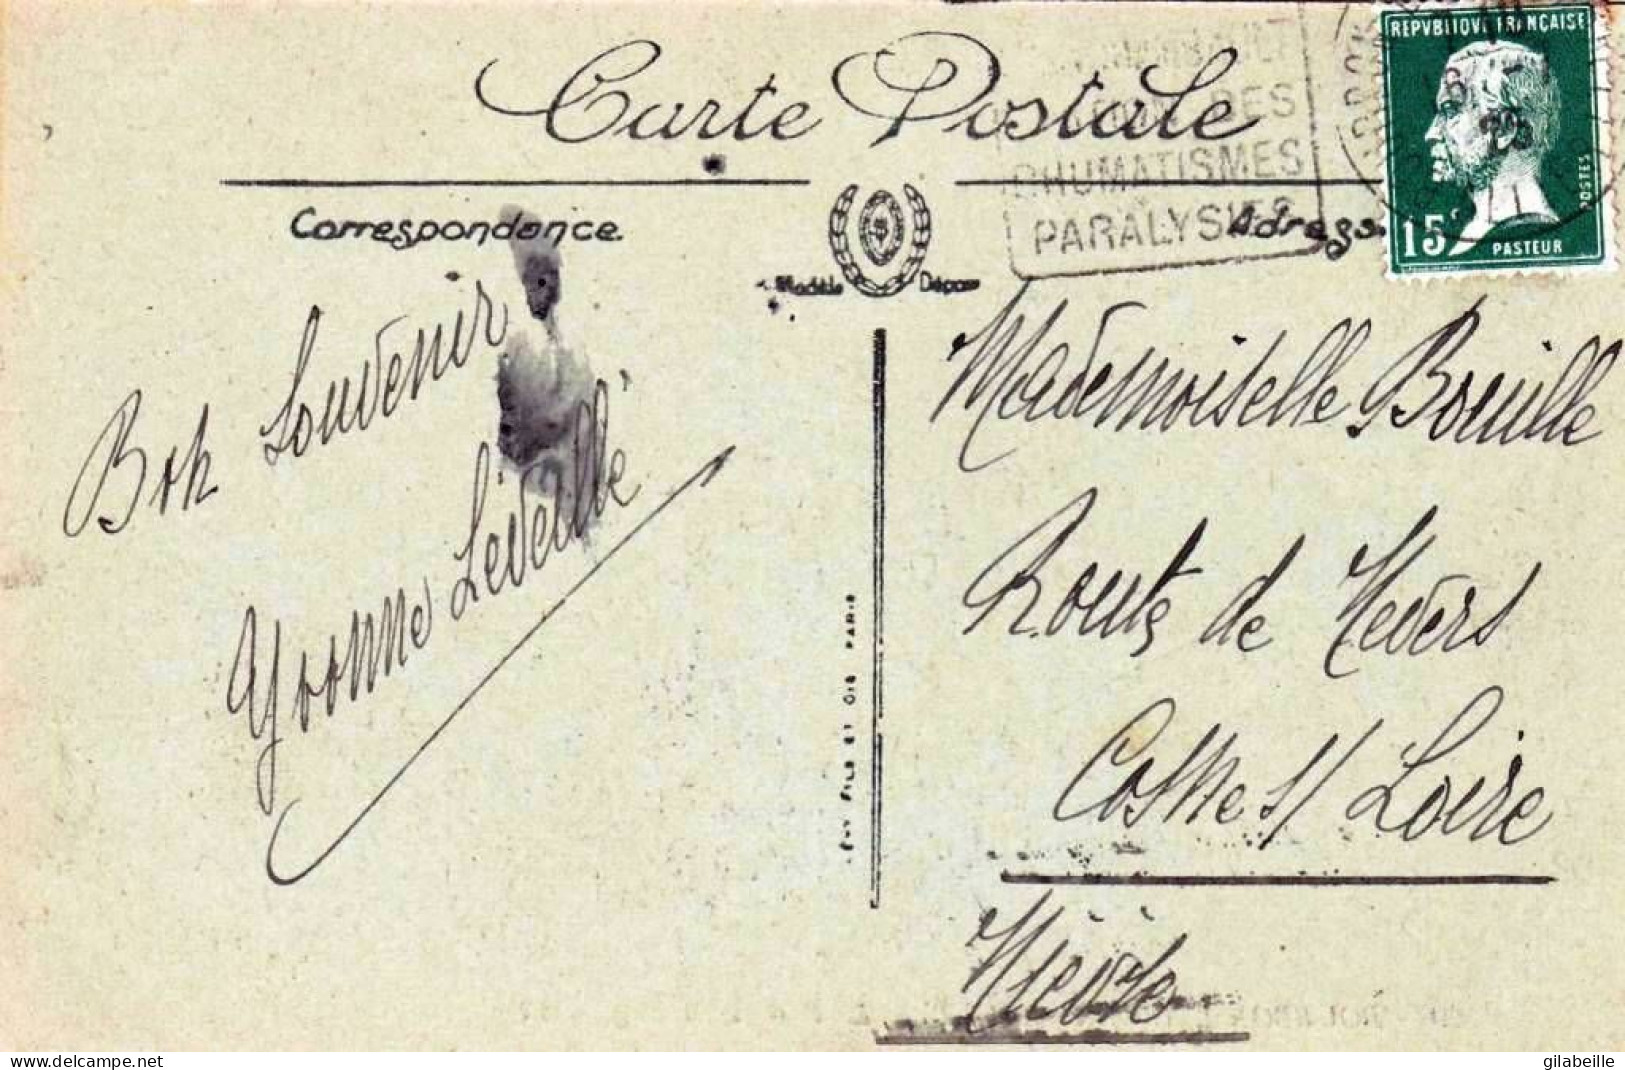 Carte Postale
RHUMATISMES
PARALYSIES
REPVBLIQVE FRANÇAISE
15c
POSTES
PASTEUR
25
Correspondance
Modèle Déposé
Adresse
Bon Souvenir
Yvonne Léveillé
LÉVY FILS ET CIE PARIS
Mademoiselle Bouille
Route de Nevers
Cosne s/ Loire
Nièvre
www.delcampe.net
gilabeille